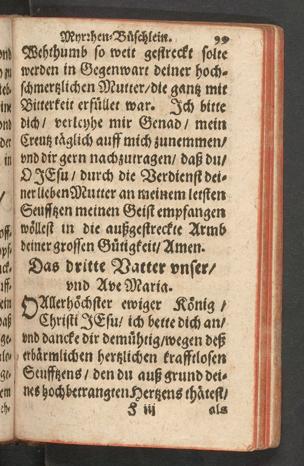 Myrrhen-Büschlein. 99
Wehthumb so weit gestreckt solte
werden in Gegenwart deiner hoch-
schmertzlichen Mutter/die gantz mit
Bitterkeit erfüllet war. Ich bitte
dich/ verleyhe mir Genad/ mein
Creutz täglich auff mich zunemmen/
vnd dir gern nachzutragen/ daß du/
O JEsu/ durch die Verdienst dei-
ner lieben Mutter an meinem letsten
Seufftzen meinen Geist empfangen
wöllest in die außgestreckte Armb
deiner grossen Gütigkeit/ Amen.
Das dritte Vatter vnser/
vnd Ave Maria.
O Allerhöchster ewiger König/
Christi JEsu/ ich bette dich an/
vnd dancke dir demühtig/wegen deß
erbärmlichen hertzlichen krafftlosen
Seufftzens/ den du auß grund dei-
nes hochbetrangten Hertzens thätest/
F iij als